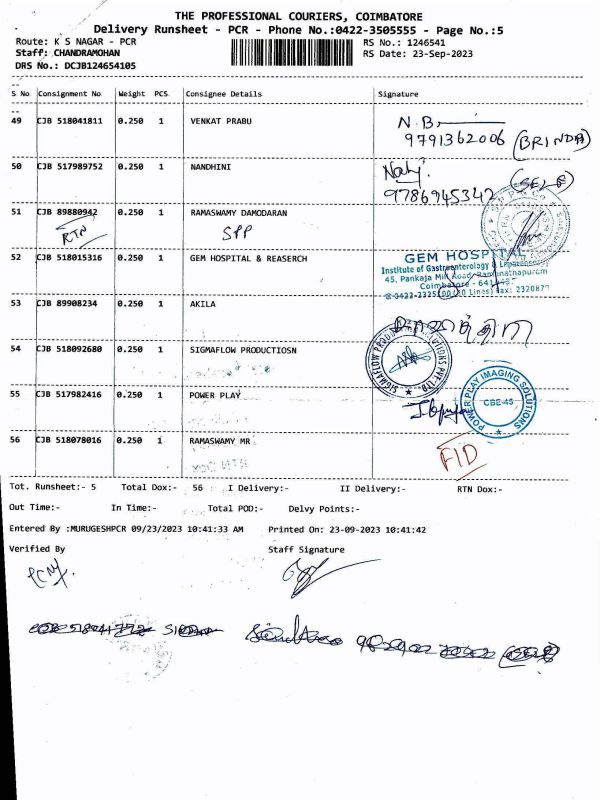 THE PROFESSIONAL COURIERS, COIMBATORE
Delivery Runsheet - PCR - Phone No.:0422-3505555 - Page No.:5
Route: K S NAGAR - PCR RS No.: 1246541
Staff: CHANDRAMOHAN RS Date: 23-Sep-2023
DRS No.: DCJB124654105
S No Consignment No Weight PCS Consignee Details Signature
49 CJB 518041811 0.250 1 VENKAT PRABU N.B
9791362006 (BRINDA)
50 CJB 517989752 0.250 1 NANDHINI
9786945342 (SELF)
51 CJB 89880942 0.250 1 RAMASWAMY DAMODARAN
RTN SPP
52 CJB 518015316 0.250 1 GEM HOSPITAL & REASERCH GEM HOSPITAL
Institute of Gastroenterology &
45, Pankaja Mill Road, Ramanathapuram
Coimbatore - 641
0422-2325100 (10 Lines) Fax: 2320879
53 CJB 89908234 0.250 1 AKILA
54 CJB 518092680 0.250 1 SIGMAFLOW PRODUCTIOSN
55 CJB 517982416 0.250 1 POWER PLAY POWER PLAY IMAGING SOLUTIONS
CBE-45
56 CJB 518078016 0.250 1 RAMASWAMY MR
FID
Tot. Runsheet:- 5 Total Dox:- 56 I Delivery:- II Delivery:- RTN Dox:-
Out Time:- In Time:- Total POD:- Delvy Points:-
Entered By :MURUGESHPCR 09/23/2023 10:41:33 AM Printed On: 23-09-2023 10:41:42
Verified By Staff Signature